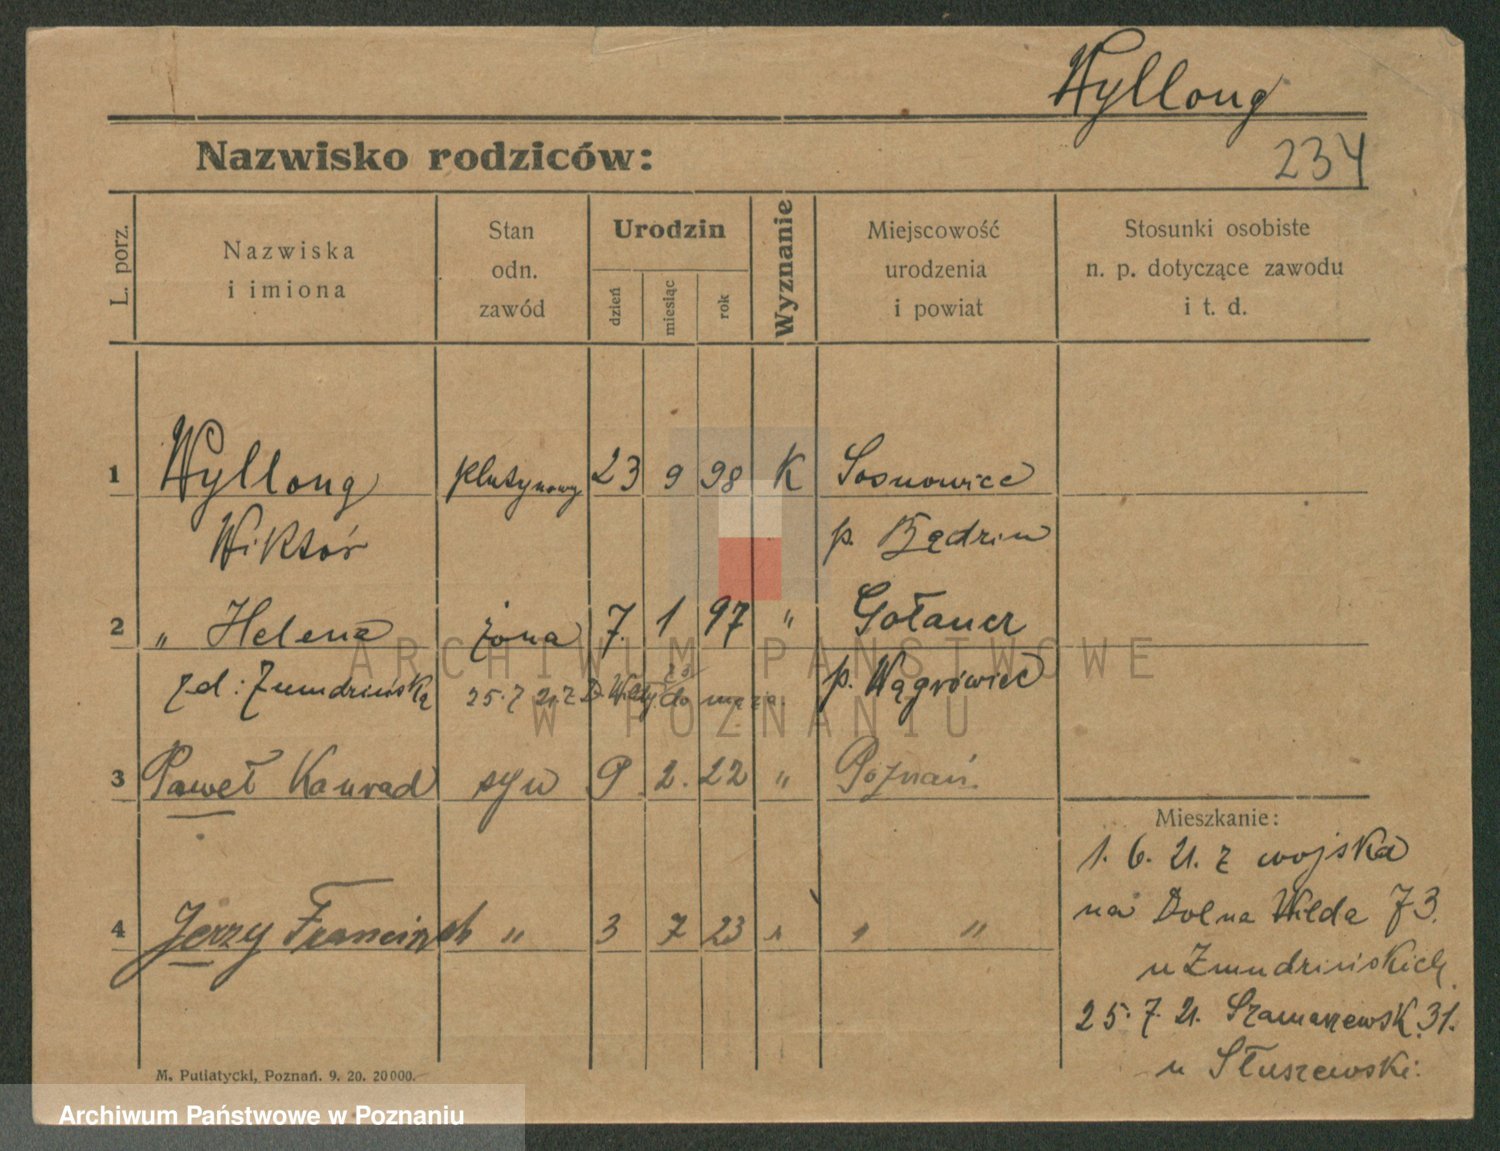 Wyllong
Nazwisko rodziców:
234
L. porz.
Nazwiska
i imiona
Stan
odn.
zawód
Urodzin
dzień
miesiąc
rok
Wyznanie
Miejscowość
urodzenia
i powiat
Stosunki osobiste
n. p. dotyczące zawodu
i t. d.
1 Wyllong 23 9 98 K Sosnowice
Wiktór p. Będzin
2 " Helena żona 7. 1 97 " Gołańcz
zd: Żmudzińską p. Wągrówiec
25.7 21. z D. Wildy 73 do męża.
3 Paweł Konrad syn 9. 2. 22 " Poznań.
4 Jerzy Franciszek " 3 7 23 " " "
Mieszkanie:
1. 6. 21. z wojska
na Dolna Wilda 73.
u Żmudzińskich
25. 7. 21. Szamarzewsk. 31.
u Słuszewski.
M. Putiatycki, Poznań. 9. 20. 20000.
ARCHIWUM PAŃSTWOWE
W POZNANIU
Archiwum Państwowe w Poznaniu